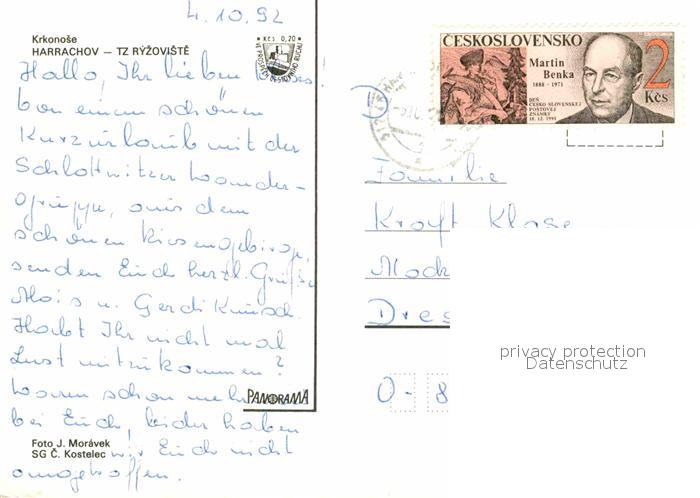 4.10.92
Krkonoše
HARRACHOV — TZ RÝŽOVIŠTĚ
Kčs 0,20
Hallo, Ihr lieben
von einem schönen
Kurzurlaub mit der
Schlottwitzer Wander-
gruppe, aus dem
schönen Riesengebirge,
senden Euch herzl. Grüße
Alois u. Gerdi
Habt Ihr nicht mal
Lust mitzukommen?
Waren schon mehr
bei Euch, leider haben
wir Euch nicht
angetroffen.
PANORAMA
Foto J. Morávek
SG Č. Kostelec
ČESKOSLOVENSKO
Martin
Benka
1888 - 1971
DEŇ
ČESKO-SLOVENSKEJ
POŠTOVEJ
ZNÁMKY
18. 12. 1991
2
Kčs
Familie
Kraft Klose
Mock
Dres
O - 8
privacy protection
Datenschutz